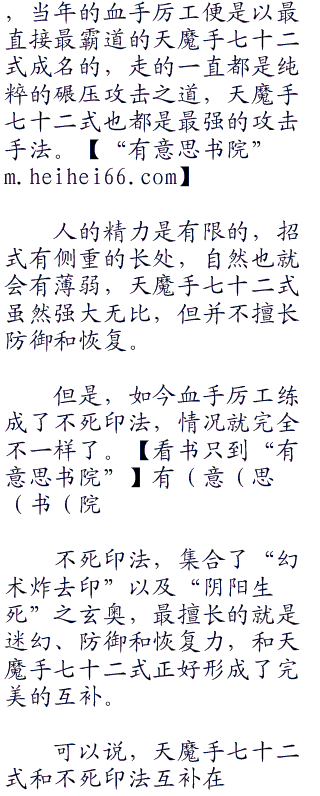 ，当年的血手厉工便是以最
直接最霸道的天魔手七十二
式成名的，走的一直都是纯
粹的碾压攻击之道，天魔手
七十二式也都是最强的攻击
手法。【“有意思书院”
m.heihei66.com】
人的精力是有限的，招
式有侧重的长处，自然也就
会有薄弱，天魔手七十二式
虽然强大无比，但并不擅长
防御和恢复。
但是，如今血手厉工练
成了不死印法，情况就完全
不一样了。【看书只到“有
意思书院”】有（意（思
（书（院
不死印法，集合了“幻
术炸去印”以及“阴阳生
死”之玄奥，最擅长的就是
迷幻、防御和恢复力，和天
魔手七十二式正好形成了完
美的互补。
可以说，天魔手七十二
式和不死印法互补在